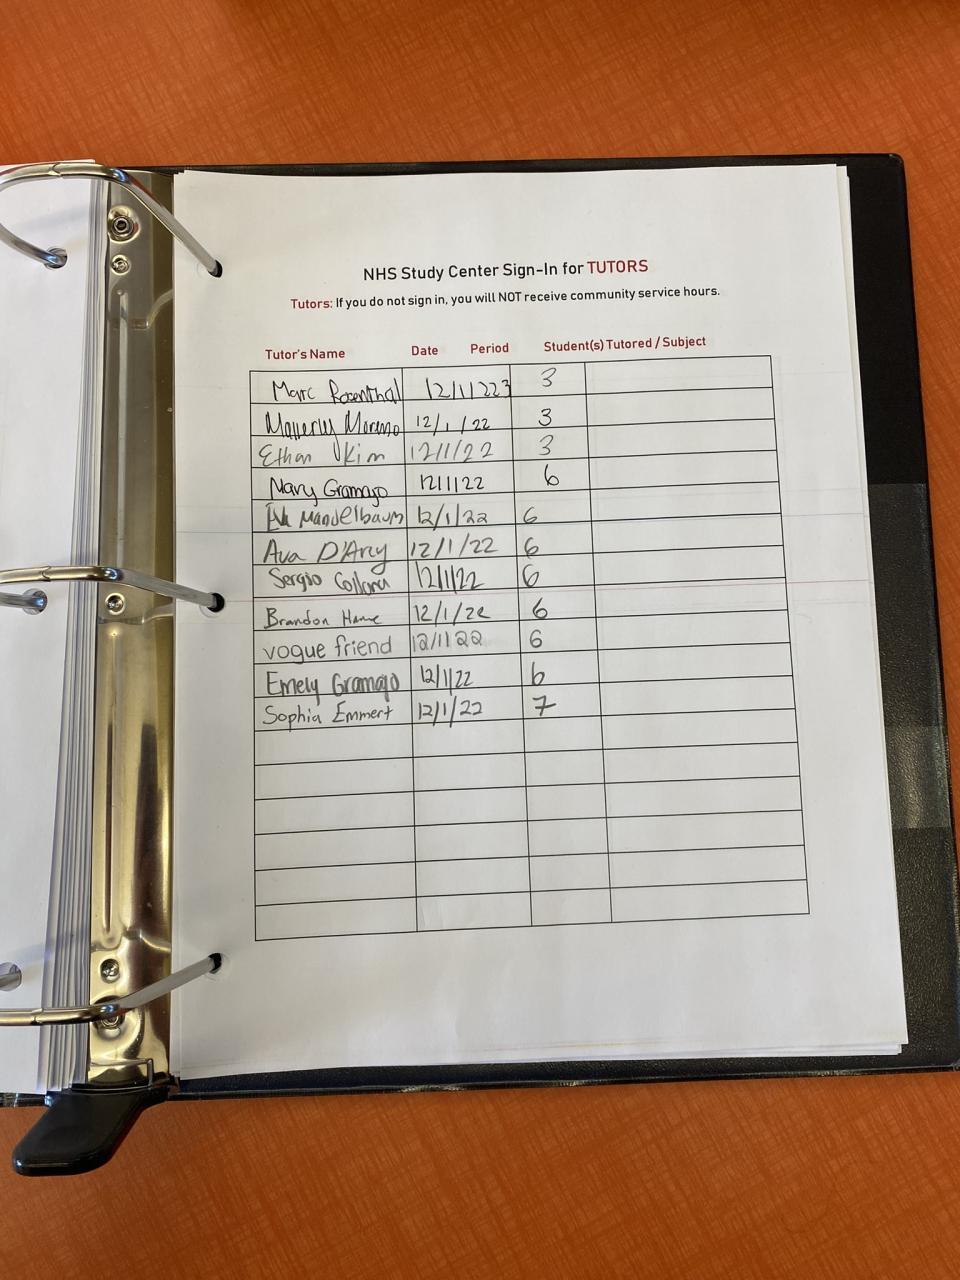 NHS Study Center Sign-In for TUTORS
Tutors: If you do not sign in, you will NOT receive community service hours.
Tutor's Name Date Period Student(s) Tutored / Subject
Marc Rosenthal 12/1/223 3
Moreno 12/1/22 3
Ethan Kim 12/1/22 3
Navy Gramajo 12/1/22 6
Mandelbaum 12/1/22 6
Ava D'Arcy 12/1/22 6
Sergio 12/1/22 6
Brandon 12/1/22 6
vogue friend 12/1/22 6
Emely Gramajo 12/1/22 6
Sophia Emmert 12/1/22 7